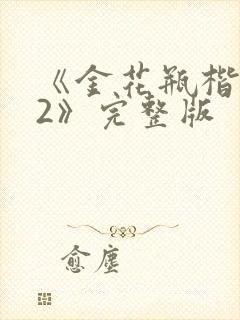 《金花瓶楷
2》完整版
愈尘